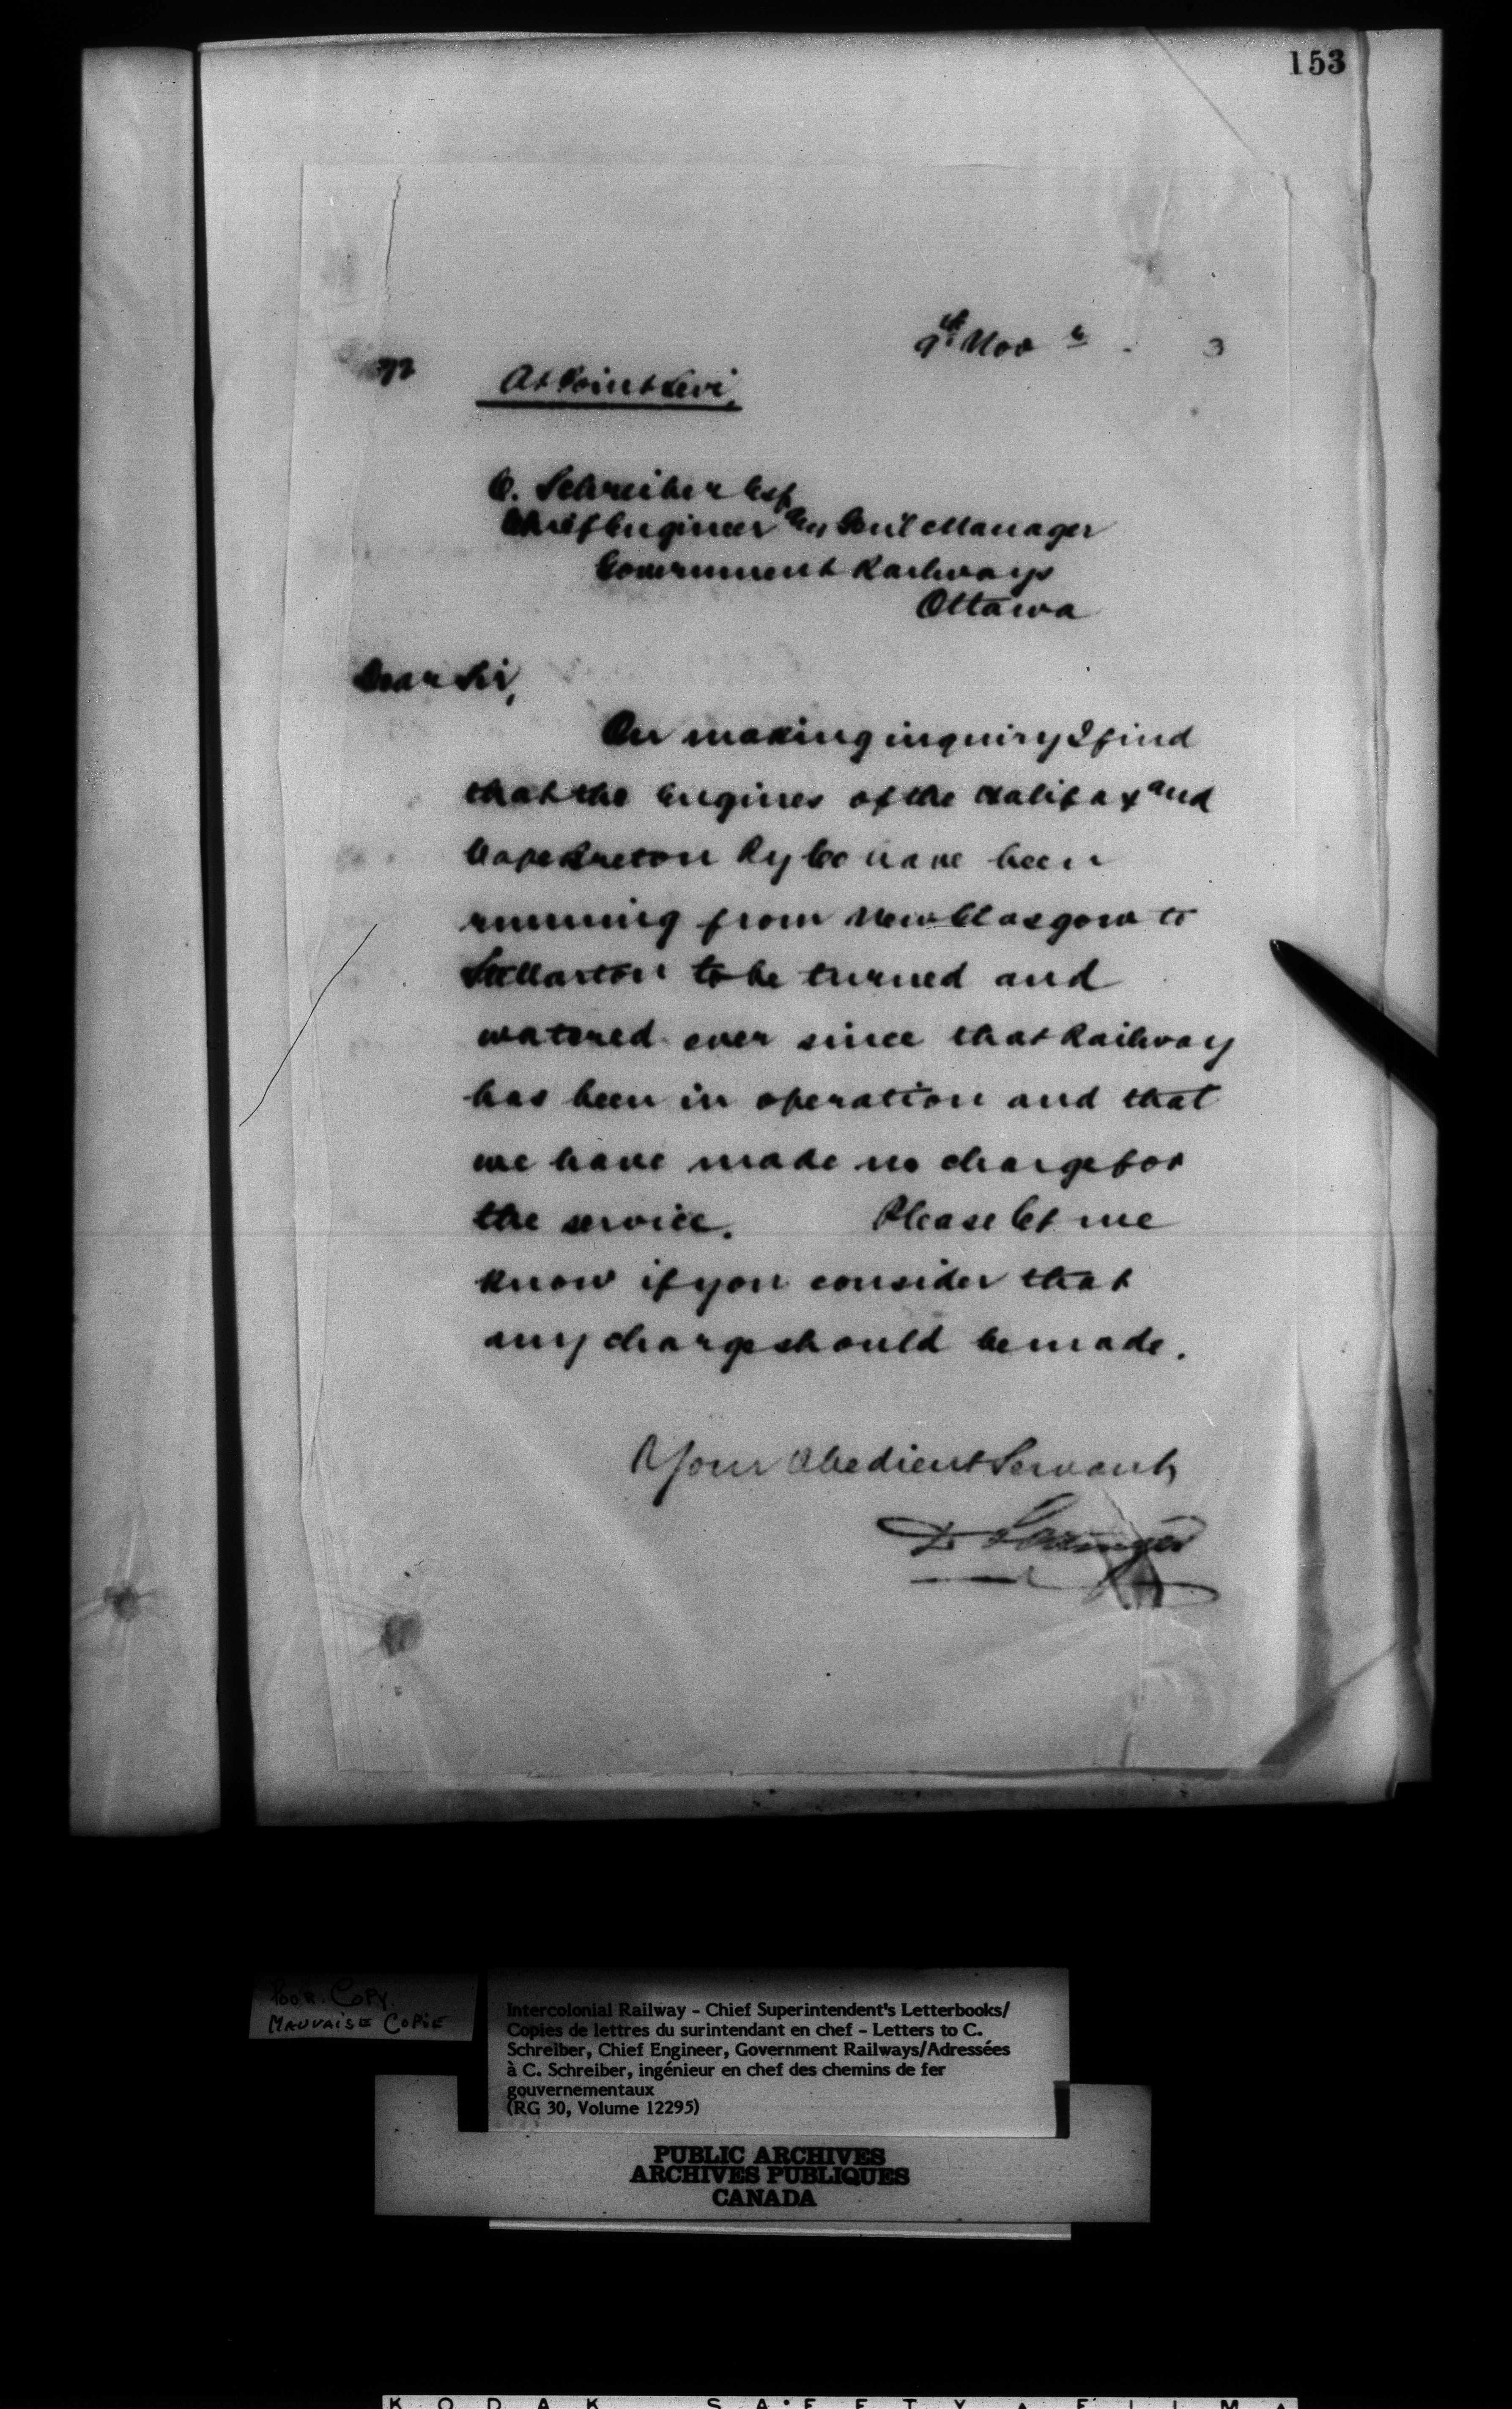 153
9th Novr. 3
72
At Point Levi,
C. Schreiber Esq
Chief Engineer Gen'l Manager
Government Railways
Ottawa
Dear Sir,
On making inquiry I find
that the Engines of the Halifax and
Cape Breton Ry Co have been
running from New Glasgow to
Stellarton to be turned and
watered ever since that Railway
has been in operation and that
we have made no charge for
the service. Please let me
know if you consider that
any charge should be made.
Your Obedient Servant,
D Pottinger
POOR COPY.
MAUVAISE COPIE
Intercolonial Railway - Chief Superintendent's Letterbooks/
Copies de lettres du surintendant en chef - Letters to C.
Schreiber, Chief Engineer, Government Railways/Adressées
à C. Schreiber, ingénieur en chef des chemins de fer
gouvernementaux
(RG 30, Volume 12295)
PUBLIC ARCHIVES
ARCHIVES PUBLIQUES
CANADA
KODAK SAFETY FILM